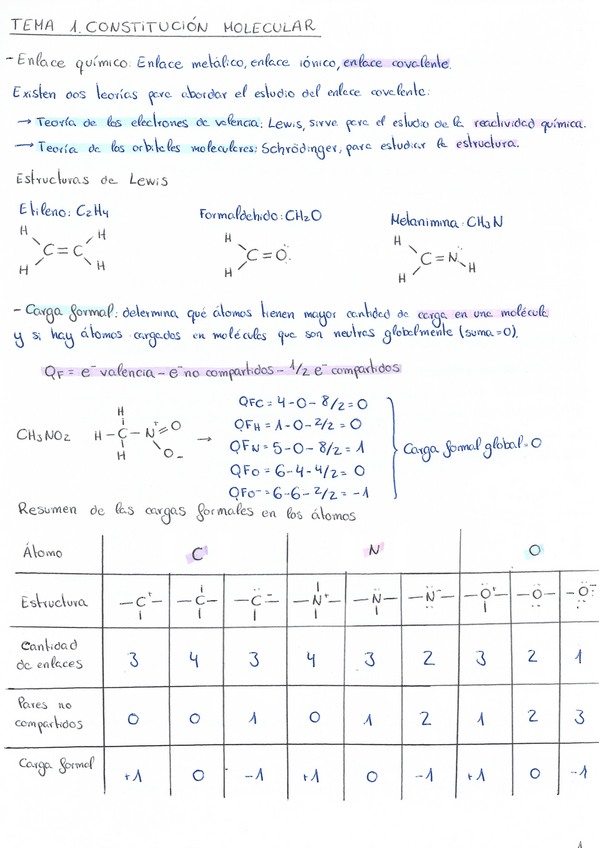 TEMA 1. CONSTITUCIÓN MOLECULAR
- Enlace químico: Enlace metálico, enlace iónico, enlace covalente.
Existen dos teorías para abordar el estudio del enlace covalente:
→ Teoría de los electrones de valencia: Lewis, sirve para el estudio de la reactividad química.
→ Teoría de los orbitales moleculares: Schrödinger, para estudiar la estructura.
Estructuras de Lewis
Etileno: C2H4 Formaldehido: CH2O Metanimina: CH3N
H H H H
C=C C=O C=N
H H H H H
- Carga formal: determina qué átomos tienen mayor cantidad de carga en una molécula
y si hay átomos cargados en moléculas que son neutras globalmente (suma=0).
QF = e⁻ valencia - e⁻ no compartidos - 1/2 e⁻ compartidos
CH3NO2 H H-C-N⁺=O H O- →
QFC = 4-0-8/2=0
QFH = 1-0-2/2=0
QFN = 5-0-8/2=1
QFO = 6-4-4/2=0
QFO⁻ = 6-6-2/2=-1
Carga formal global=0
Resumen de las cargas formales en los átomos
Átomo C N O
Estructura -C⁺- -C- -C̈⁻- -N⁺- -N̈- -N̈⁻- -Ö⁺- -Ö- -Ö:⁻
Cantidad de enlaces 3 4 3 4 3 2 3 2 1
Pares no compartidos 0 0 1 0 1 2 1 2 3
Carga formal +1 0 -1 +1 0 -1 +1 0 -1